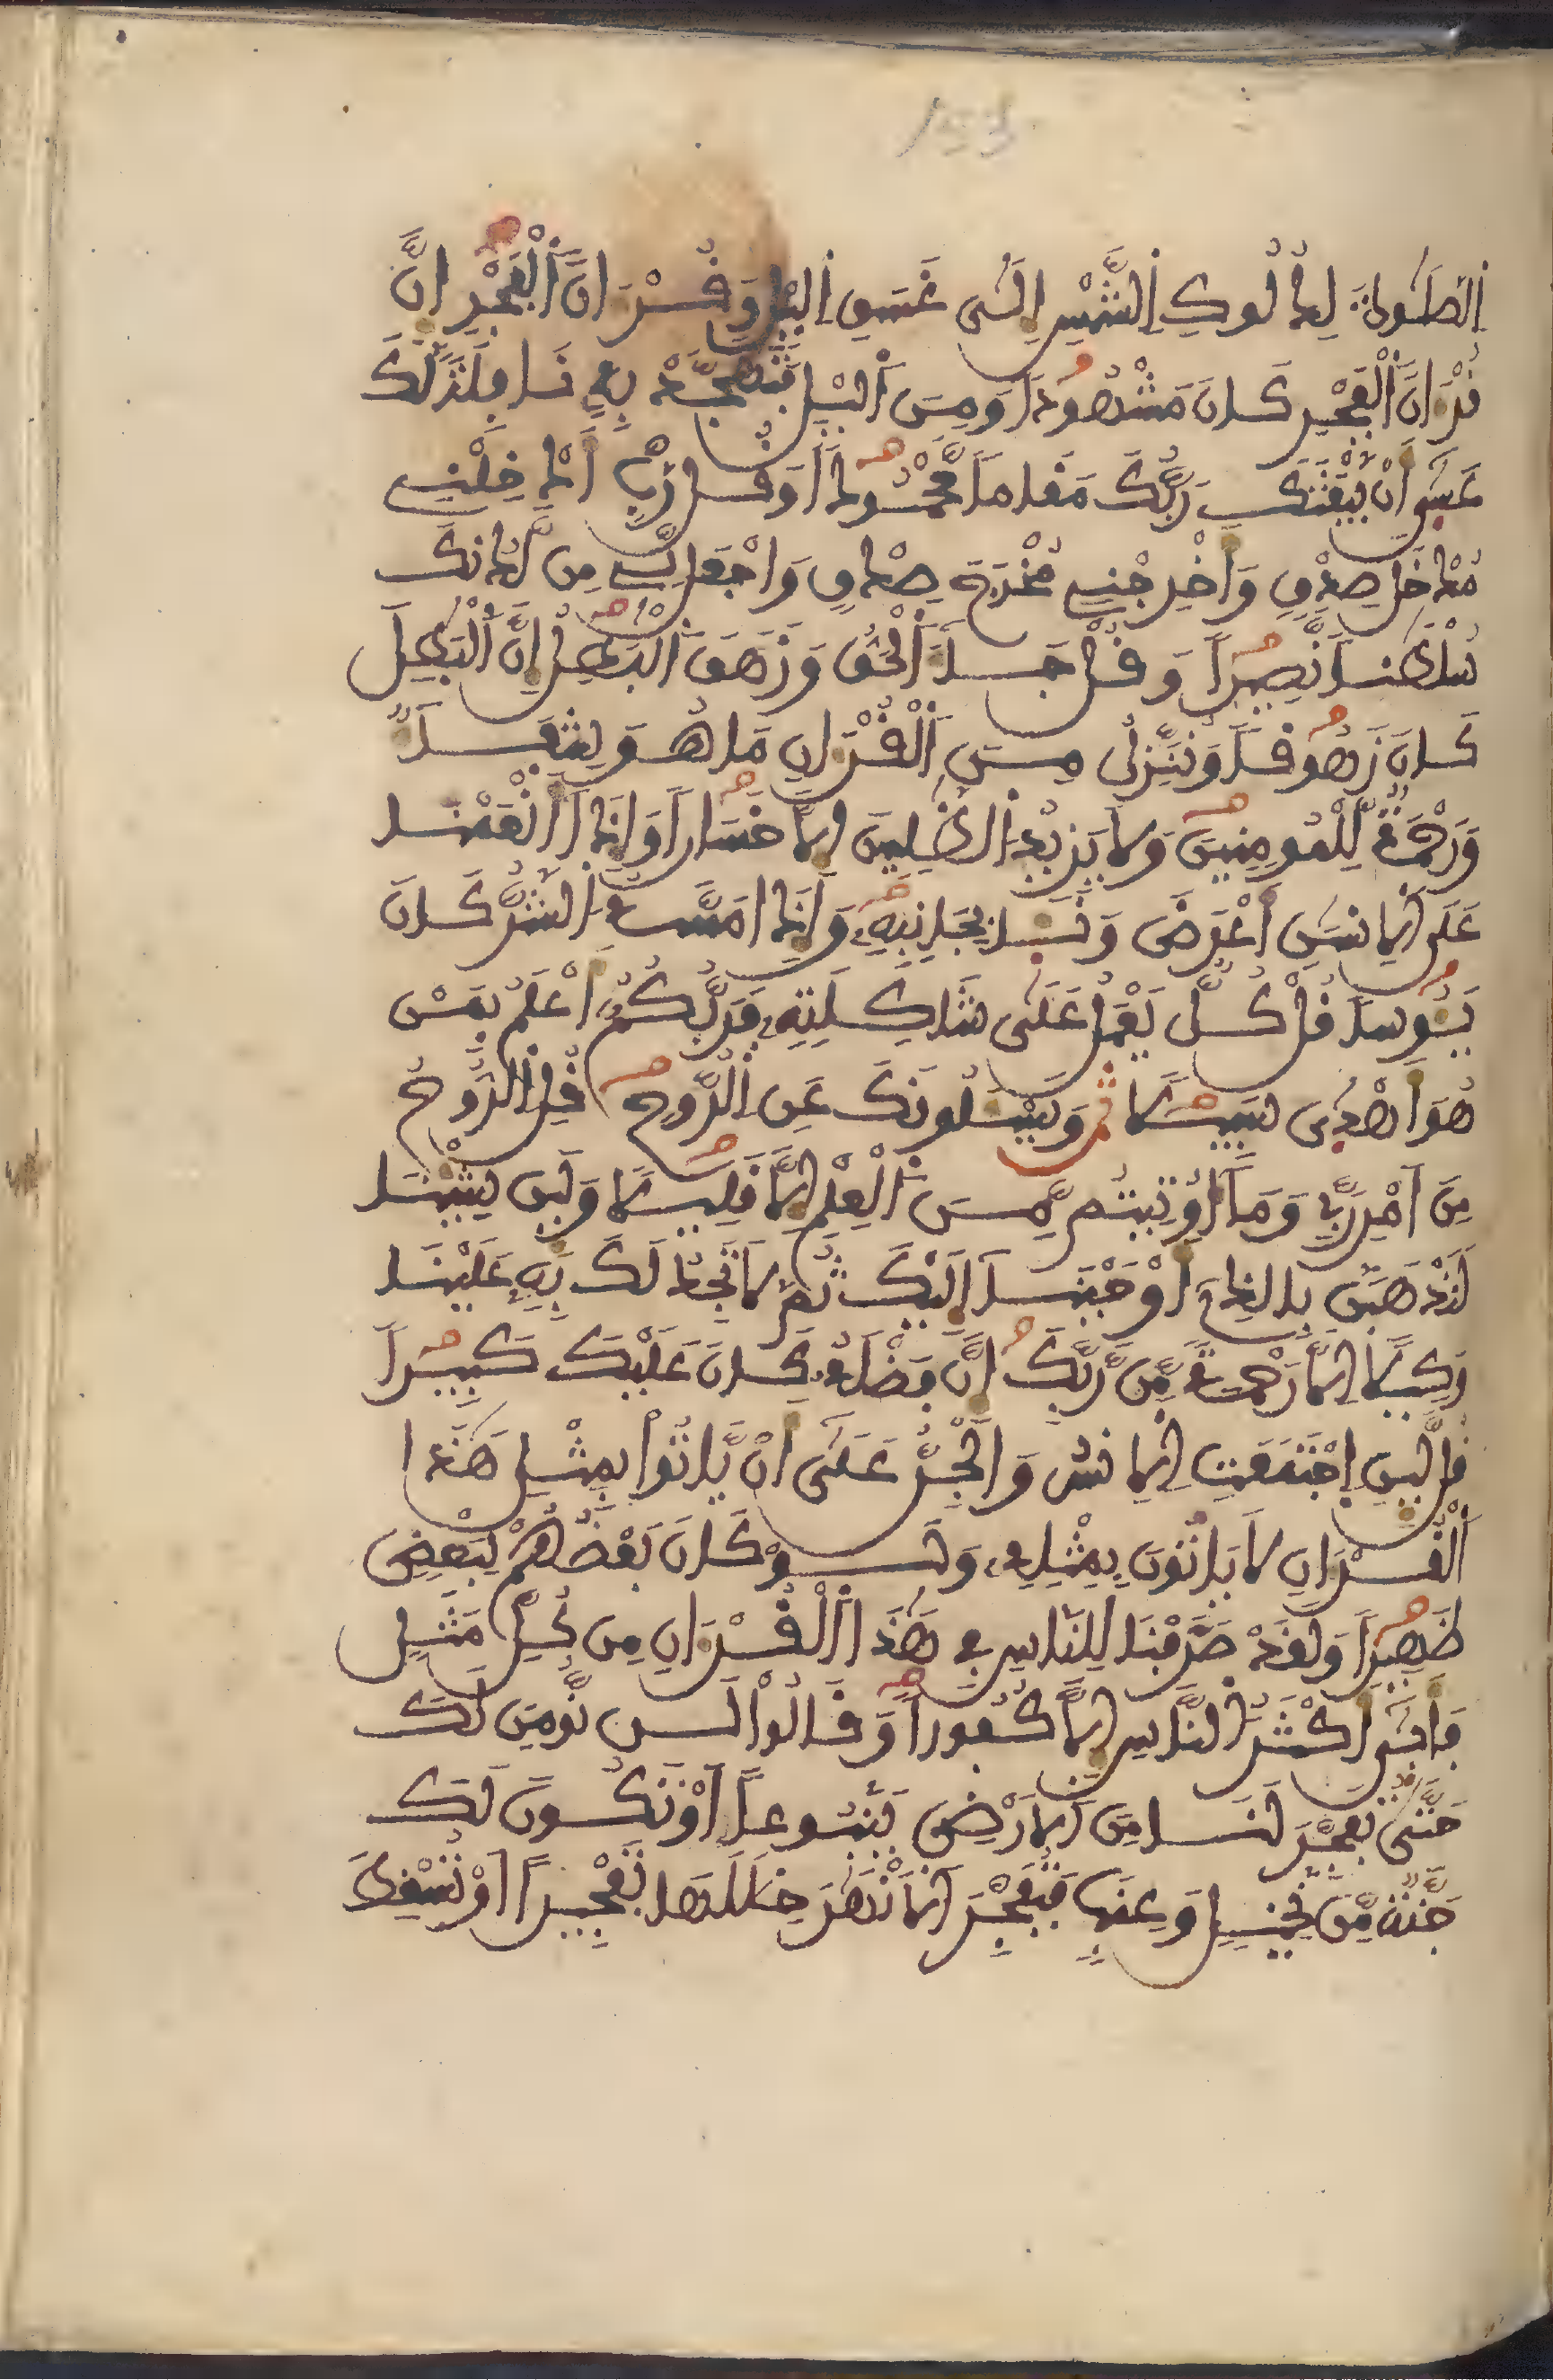 اِ۬لصَّلَوٰةَ لِدُلُوكِ اِ۬لشَّمْسِ إِلَىٰ غَسَقِ اِ۬ليْلِ وَقُرْءَانَ اَ۬لْفَجْرِ إِنَّ
قُرْءَانَ اَ۬لْفَجْرِ كَانَ مَشْهُوداٗ وَمِنَ اَ۬ليْلِ فَتَهَجَّدْ بِهِۦ نَافِلَةٗ لَّكَ
عَسَىٰ أَنْ يَّبْعَثَكَ رَبُّكَ مَقَاماٗ مَّحْمُوداٗ وَقُل رَّبِّ أَدْخِلْنِے
مُدْخَلَ صِدْقٖ وَأَخْرِجْنِے مُخْرَجَ صِدْقٖ وَاجْعَل لِّے مِن لَّدُنكَ
سُلْطَٰناٗ نَّصِيراٗ وَقُلْ جَآءَ اَ۬لْحَقُّ وَزَهَقَ اَ۬لْبَٰطِلُ إِنَّ اَ۬لْبَٰطِلَ
كَانَ زَهُوقاٗ وَنُنَزِّلُ مِنَ اَ۬لْقُرْءَانِ مَا هُوَ شِفَآءٞ
وَرَحْمَةٞ لِّلْمُومِنِينَ وَلَا يَزِيدُ اُ۬لظَّٰلِمِينَ إِلَّا خَسَاراٗ وَإِذَآ أَنْعَمْنَا
عَلَى اَ۬لِانسَٰنِ أَعْرَضَ وَنَـَٔا بِجَانِبِهِۦ وَإِذَا مَسَّهُ اُ۬لشَّرُّ كَانَ
يَـُٔوساٗ قُلْ كُلّٞ يَعْمَلُ عَلَىٰ شَاكِلَتِهِۦ فَرَبُّكُمُۥٓ أَعْلَمُ بِمَنْ
هُوَ أَهْدَىٰ سَبِيلاٗ وَيَسْـَٔلُونَكَ عَنِ اِ۬لرُّوحِ قُلِ اِ۬لرُّوحُ
مِنَ اَمْرِ رَبِّے وَمَآ أُوتِيتُم مِّنَ اَ۬لْعِلْمِ إِلَّا قَلِيلاٗ وَلَئِن شِئْنَا
لَنَذْهَبَنَّ بِالذِےٓ أَوْحَيْنَآ إِلَيْكَ ثُمَّ لَا تَجِدُ لَكَ بِهِۦ عَلَيْنَا
وَكِيلاً اِلَّا رَحْمَةٗ مِّن رَّبِّكَ إِنَّ فَضْلَهُۥ كَانَ عَلَيْكَ كَبِيراٗ
قُل لَّئِنِ اِ۪جْتَمَعَتِ اِ۬لِانسُ وَالْجِنُّ عَلَىٰٓ أَنْ يَّاتُواْ بِمِثْلِ هَٰذَا
اَ۬لْقُرْءَانِ لَا يَاتُونَ بِمِثْلِهِۦ وَلَوْ كَانَ بَعْضُهُمْ لِبَعْضٖ
ظَهِيراٗ وَلَقَدْ صَرَّفْنَا لِلنَّاسِ فِے هَٰذَا اَ۬لْقُرْءَانِ مِن كُلِّ مَثَلٖ
فَأَبَىٰٓ أَكْثَرُ اُ۬لنَّاسِ إِلَّا كُفُوراٗ وَقَالُواْ لَن نُّومِنَ لَكَ
حَتَّىٰ تُفَجِّرَ لَنَا مِنَ اَ۬لَارْضِ يَنۢبُوعاً اَوْ تَكُونَ لَكَ
جَنَّةٞ مِّن نَّخِيلٖ وَعِنَبٖ فَتُفَجِّرَ اَ۬لَانْهَٰرَ خِلَٰلَهَا تَفْجِيراً اَوْ تُسْقِطَ